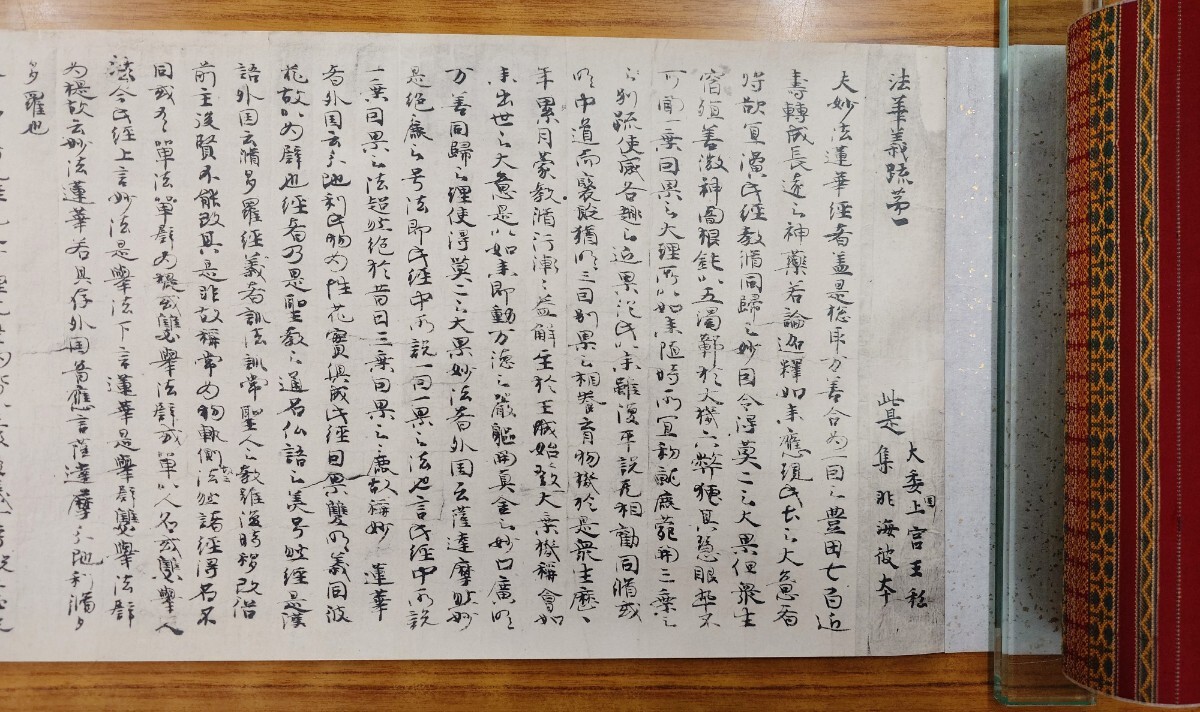 法華義疏第一
此是
大委国上宮王私
集非海彼本
夫妙法蓮華経者蓋是惣取万善合為一因之豊田七百近
寿轉成長遠之神薬若論迦釋如来應現此土之大意者
将欲宜演此経教脩同歸之妙因令得莫二之大果但衆生
宿殖善微神闇根鈍以五濁鄣於大機六弊掩其慧眼卒不
可聞一乗因果之大理所以如来随時所宜初就鹿苑開三乗之
別疏使感各趣之近果従此以来雖復平説无相勧同脩或
明中道而褒貶猶明三因別果之相養育物機於是衆生歴
年累月蒙教脩行漸々益解至於王城始發大乗機稱會如
来出世之大意是以如来即動万徳之嚴軀開真金之妙口廣明
万善同歸之理使得莫二之大果妙法者外国云薩達摩然妙
是絶麁之号法即此経中所説一因一果之法也言此経中所説
一乗因果之法超然絶於昔日三乗因果之麁故稱妙　蓮華
者外国云分陁利此物為性花實倶成此経因果雙明義同彼
花故以為譬也経者乃是聖教之通名仏語之美号然経是漢
語外国云脩多羅経義者訓法訓常聖人之教雖復時移改俗
前主後賢不能改其是非故稱常為物軌則云法然諸経得名不
同或有單法單譬為題或雙舉法譬或單以人名或雙舉人
法今此経上言妙法是舉法下言蓮華是舉譬雙舉法譬
為題故云妙法蓮華若具存外国音應言薩達摩分陁利脩
多羅也